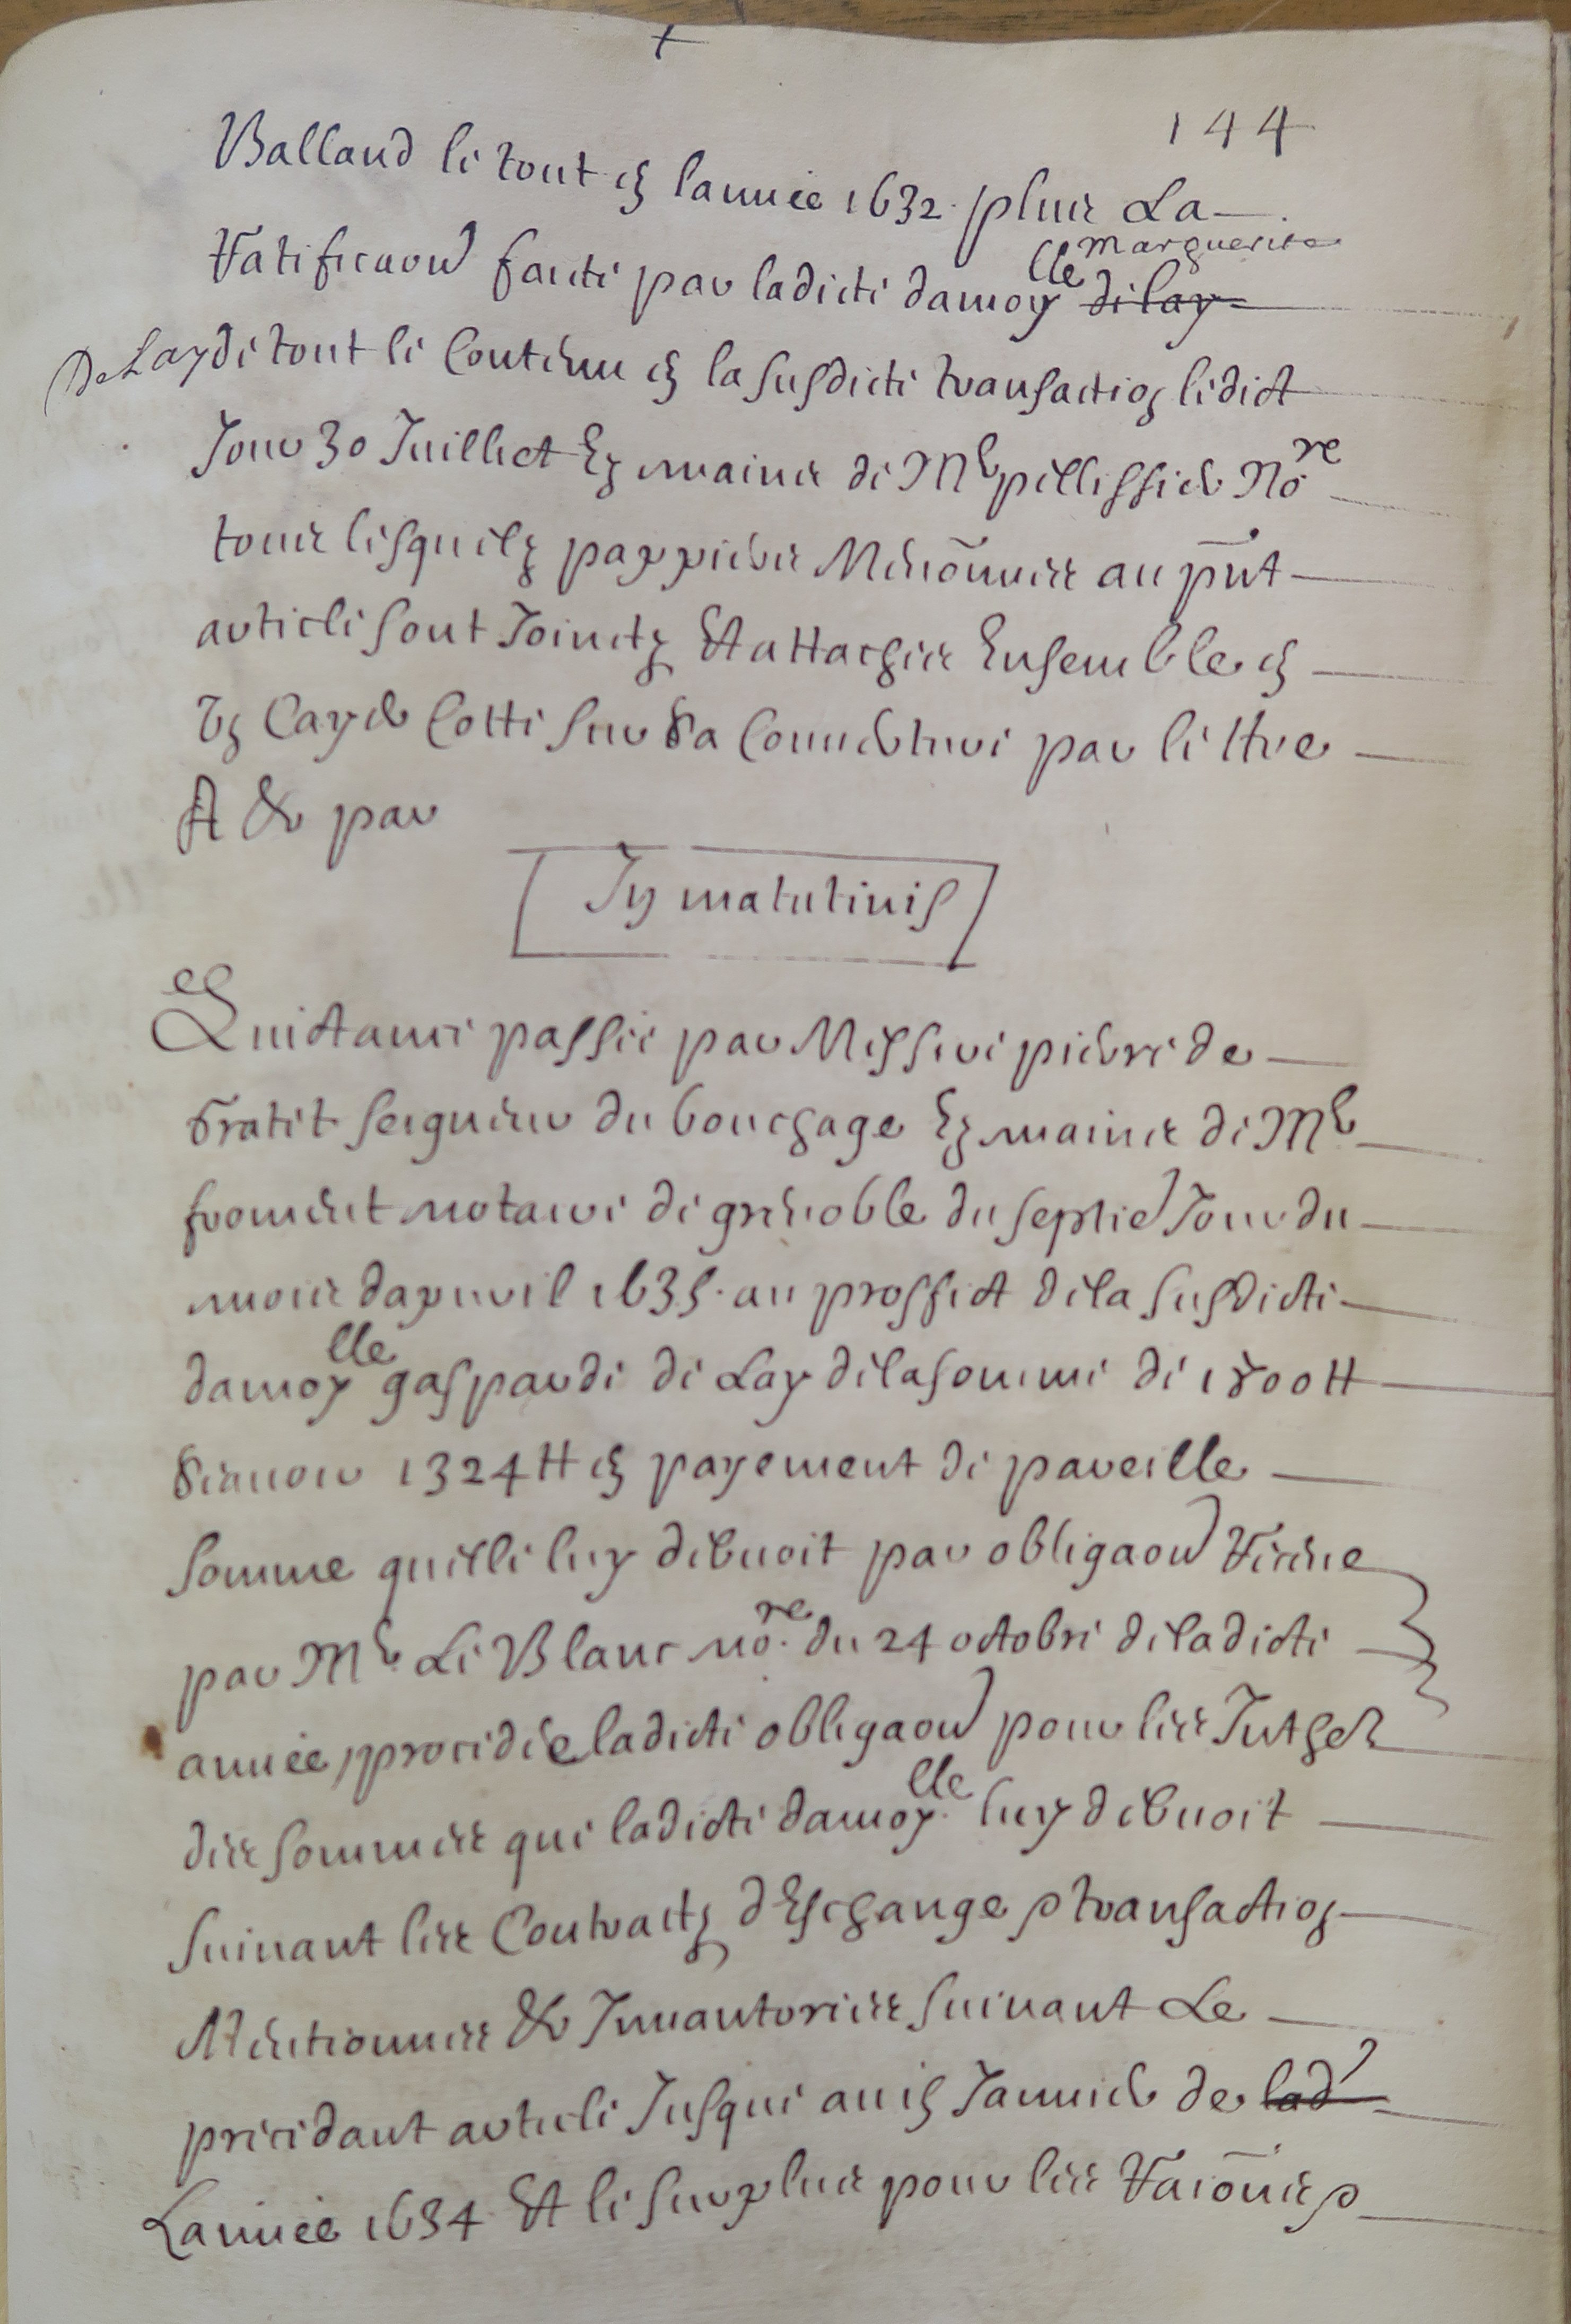 144
Balland le tout en lannee 1632. plus La
Ratificaon faicte par ladicte damoylle Marguerite de lay
De Lay de tout le Contenu en la susdicte transaction ledict
Jour 30 Juillet Ez mains de Me pellissier Nore
tous lesquelz pappiers Menõnnes au pnt
article sont Joinctz Et attachez Ensemble en
Un Cayer Cotté sur sa Couuerture par lettre
A Et par
In matutinis
Quictance passée par Messire pierre de
Gratet seigneur du bouchage Ez mains de Me
froment notaire de grenoble du septie Jour du
mois dapuril 1635. au proffict de la susdicte
damoylle gasparde de Lay de la somme de 1800 tt
sçauoir 1324 tt en payement de pareille
somme quelle luy debuoit par obligaon Receue
par Me Le Blanc nore. du 24 octobre de ladicte
année, procédée ladicte obligaon pour les Inthetz
des sommes que ladicte damoylle luy debuoit
suiuant les Contractz dEschange, transaction
Mentionnes & Inuantories suiuant Le
precedant article Jusque au in Januier de lad
Lannée 1634 Et le surplus pour les Raiõnes,